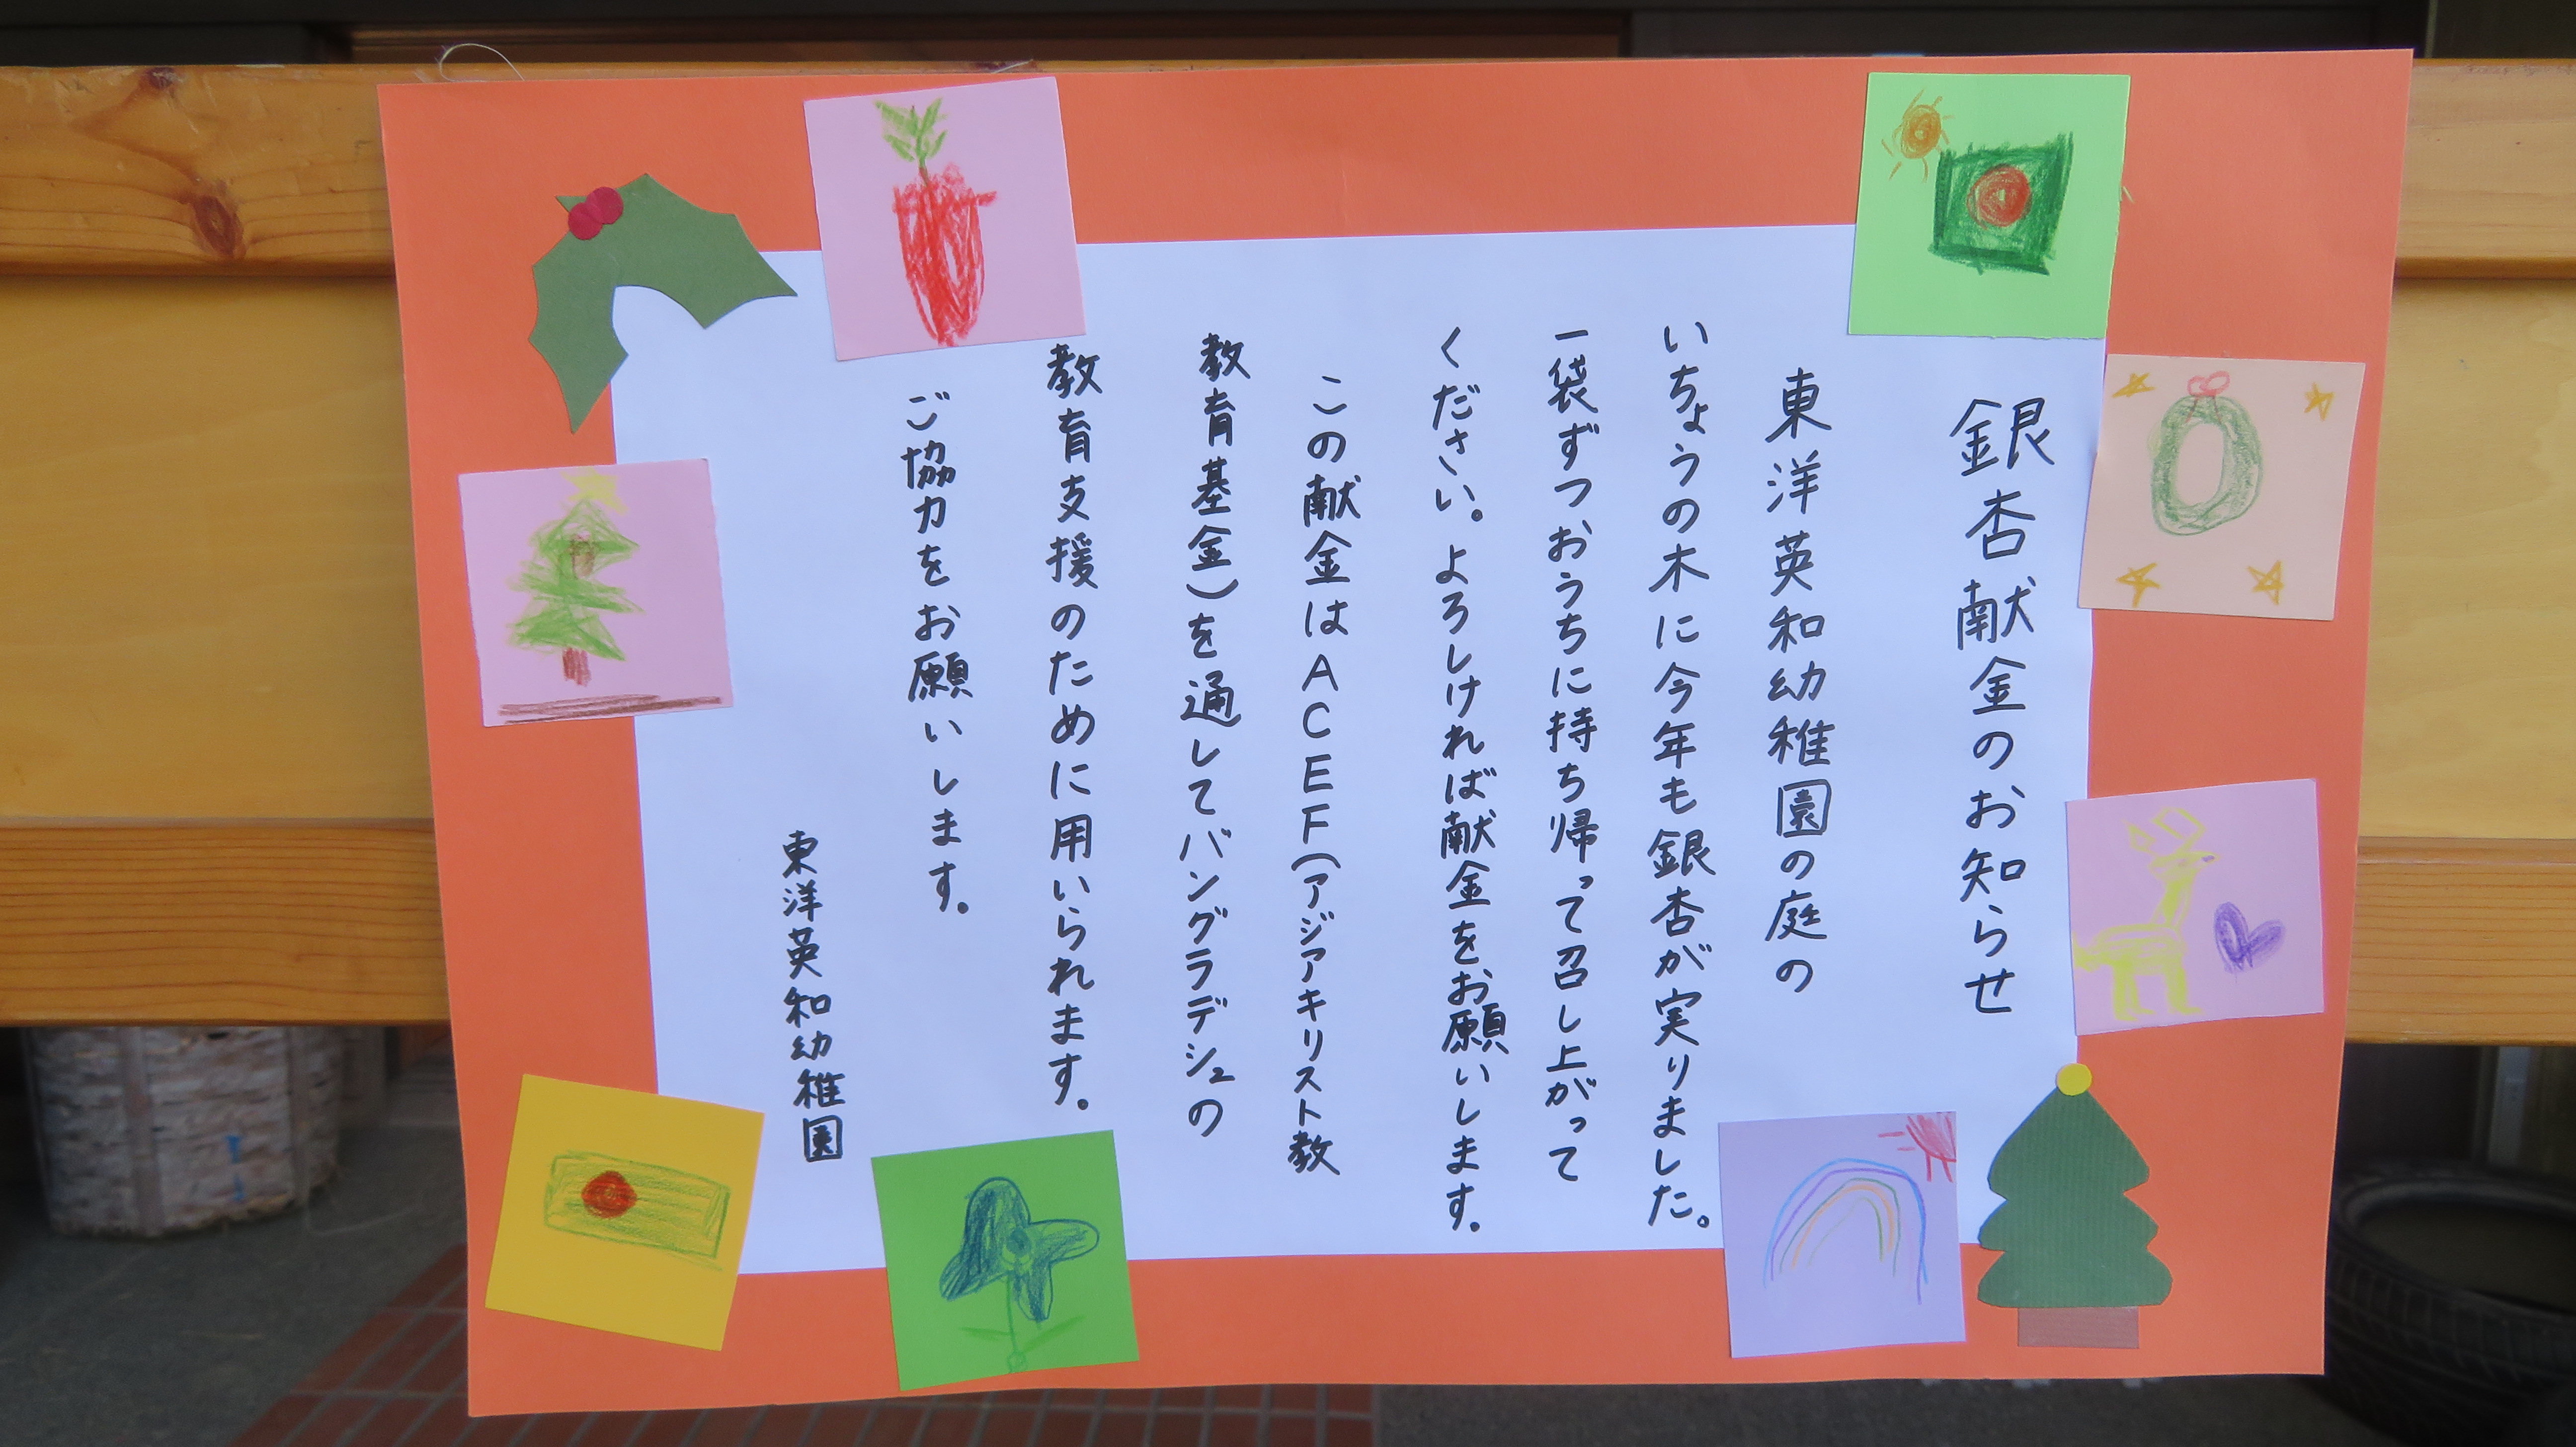 銀杏献金のお知らせ
東洋英和幼稚園の庭の
いちょうの木に今年も銀杏が実りました。
一袋ずつおうちに持ち帰って召し上がって
ください。よろしければ献金をお願いします。
この献金はACEF(アジアキリスト教
教育基金)を通してバングラデシュの
教育支援のために用いられます。
ご協力をお願いします。
東洋英和幼稚園